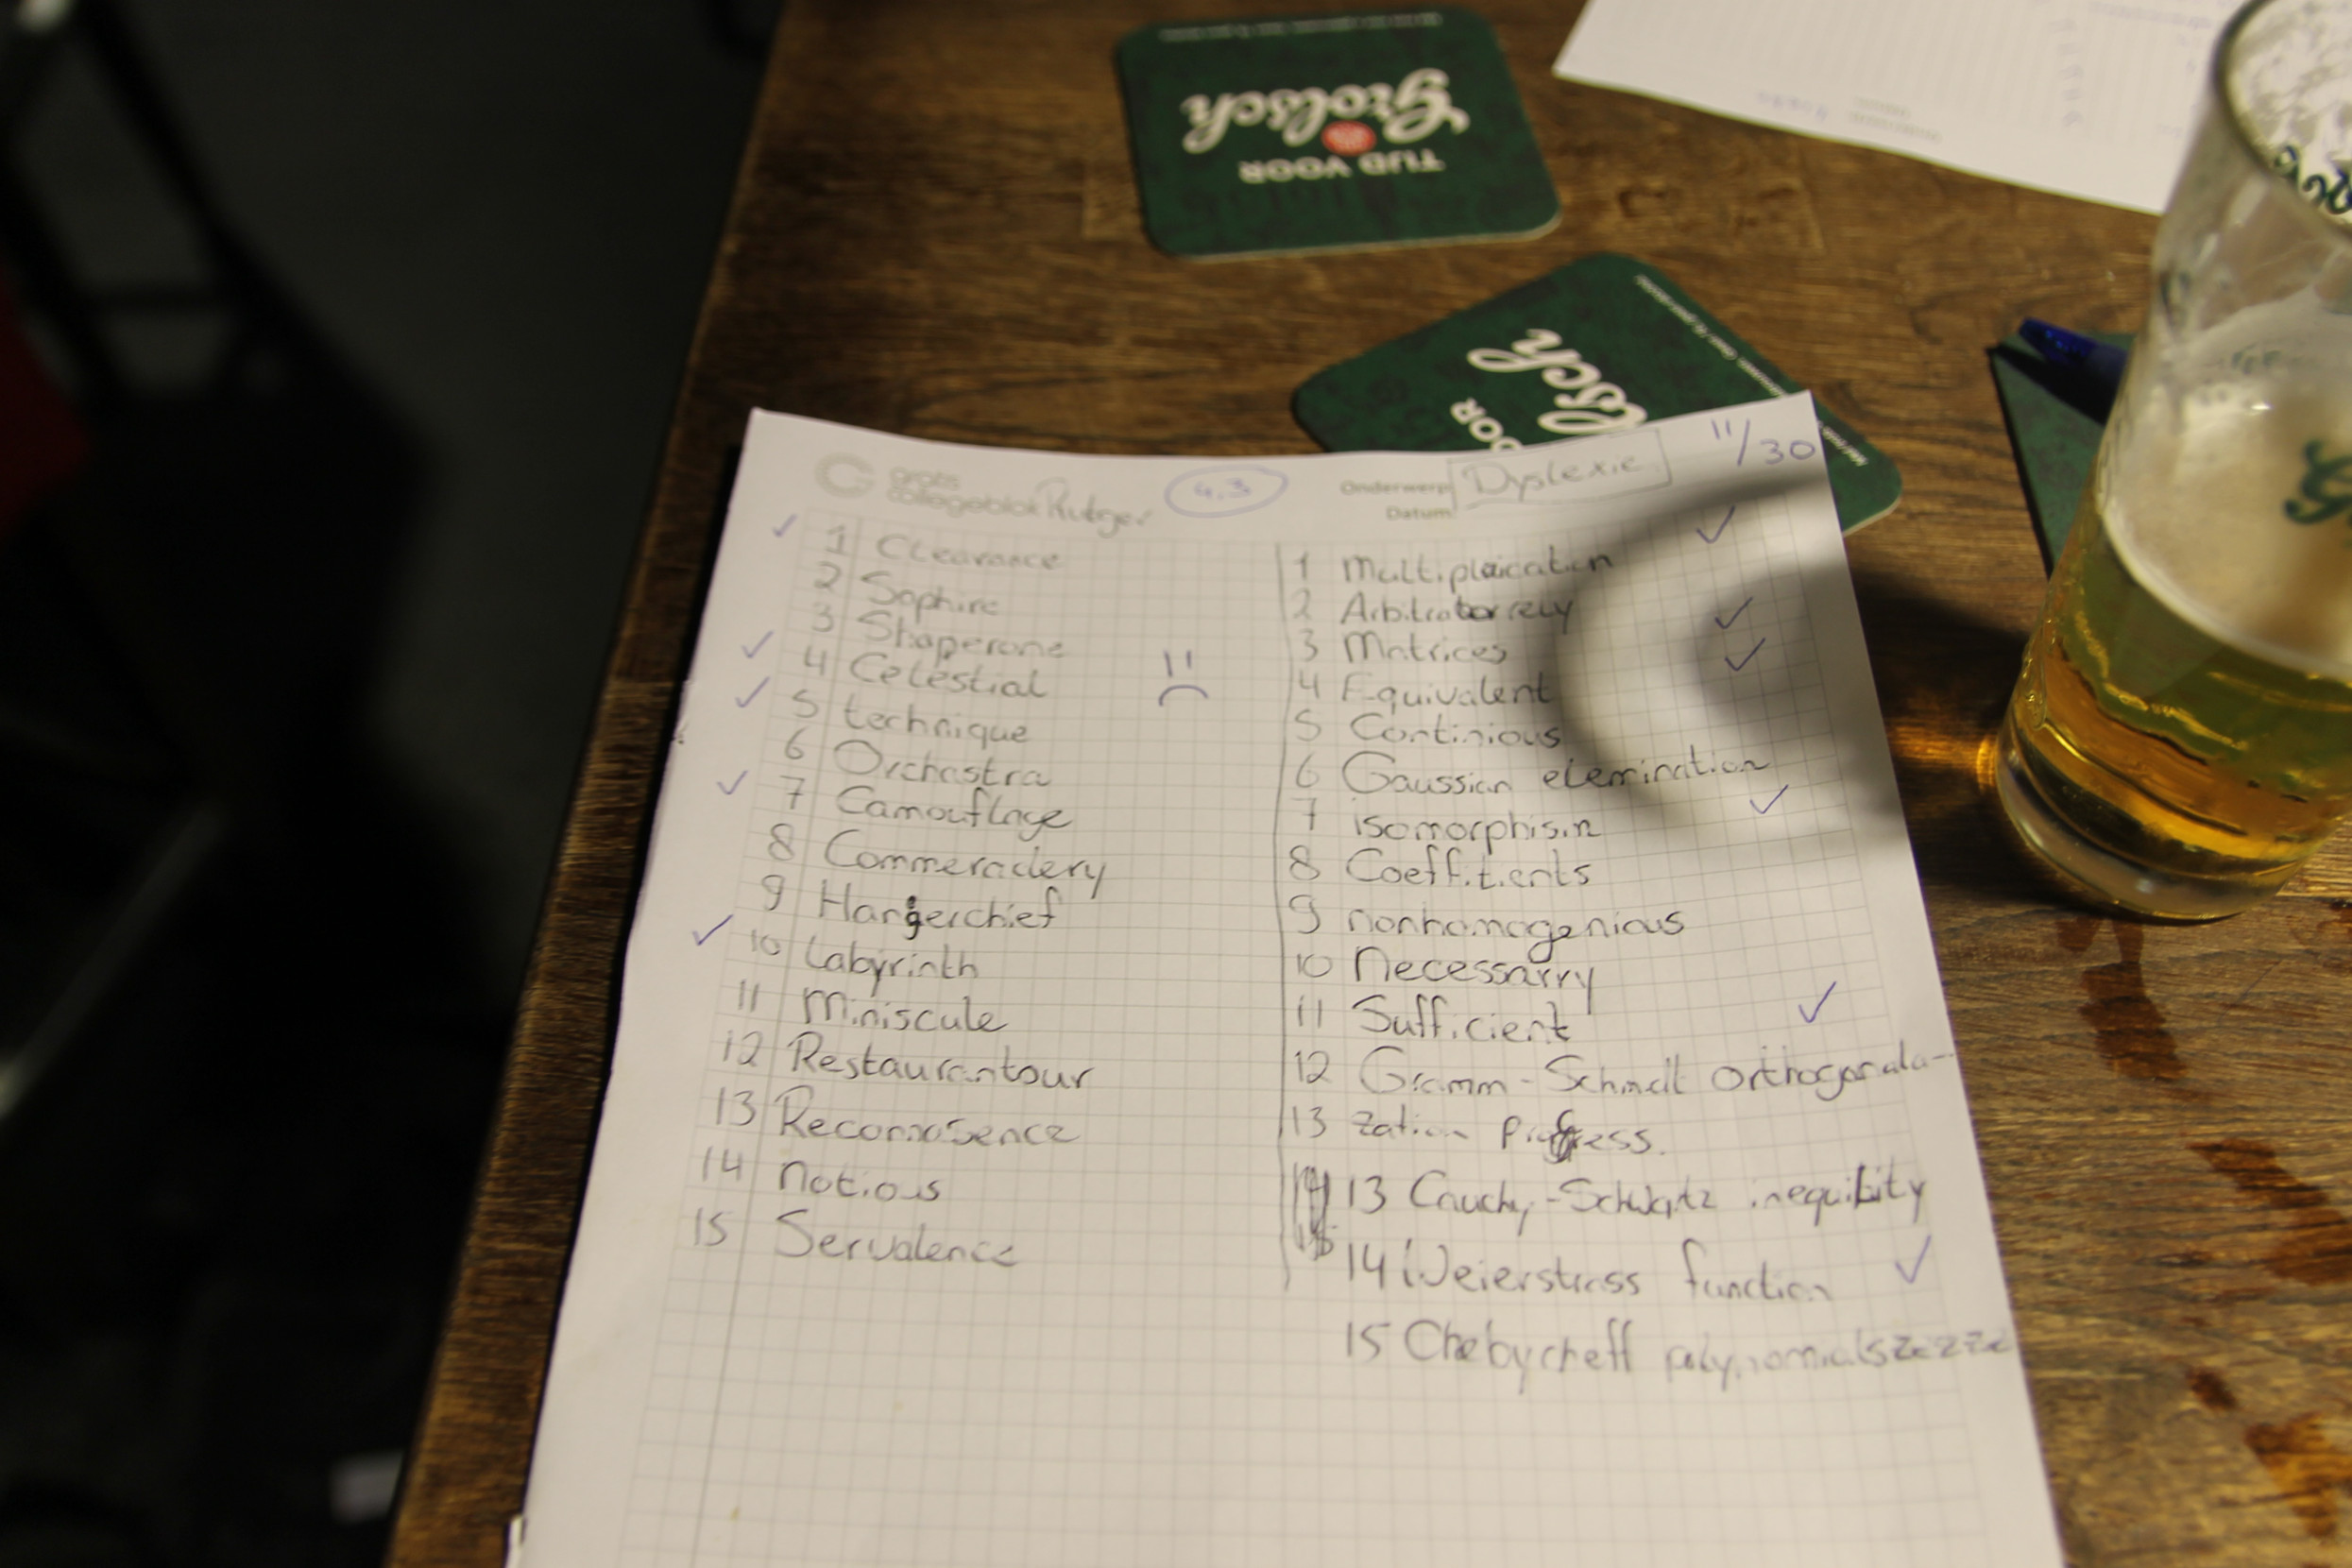 TIJD VOOR
Grolsch
OOR
lsch
11/30
gratis
collegeblok Rutger
4,3
Onderwerp Dyslexie
Datum
1 Clearance
2 Saphire
3 Shaperone
4 Celestial
5 technique
6 Orchastra
7 Camouflage
8 Commeradery
9 Hangerchief
10 Labyrinth
11 Miniscule
12 Restaurantour
13 Reconnosence
14 Notious
15 Servalence
1 Multiplication
2 Arbitrarrely
3 Matrices
4 Equivalent
5 Continious
6 Gaussian elemination
7 isomorphism
8 Coeffitients
9 nonhomogenious
10 Necessarry
11 Sufficient
12 Gramm-Schmit Orthogonala-
13 zation
13 Cauchy-Schwartz inequility
14 Weierstrass function
15 Chebycheff polynomials